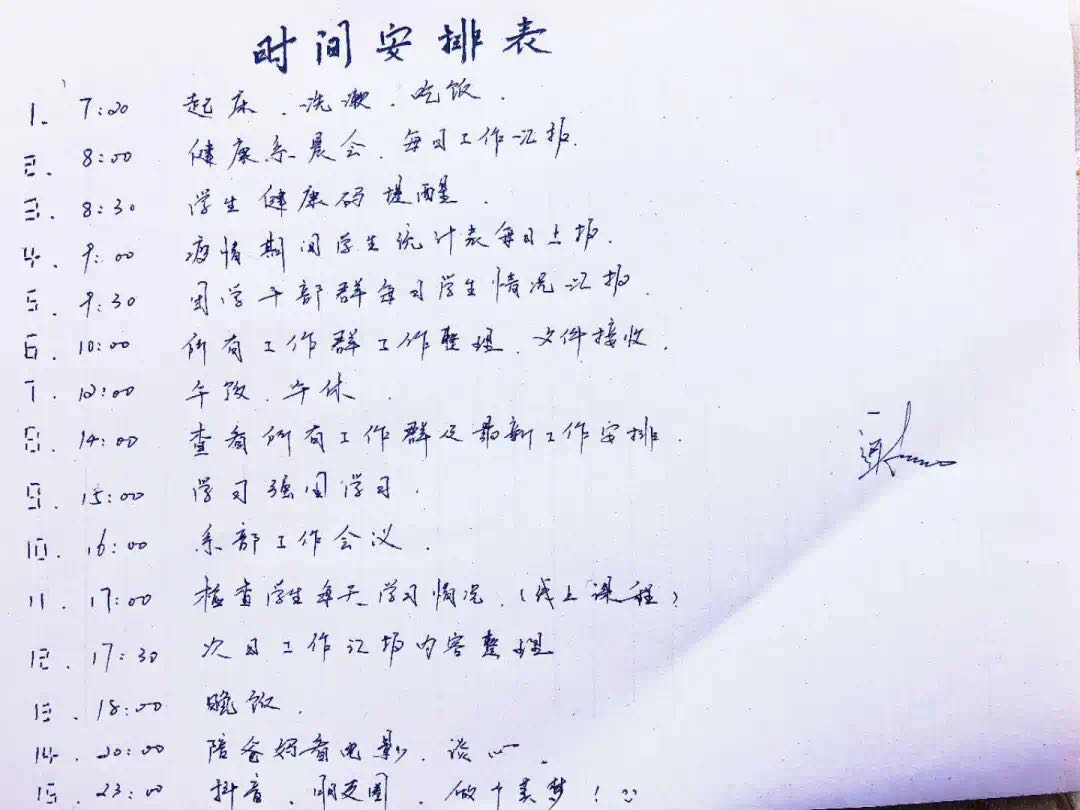 时间安排表
1. 7:20 起床、洗漱、吃饭.
2. 8:00 健康系晨会、每日工作汇报.
3. 8:30 学生健康码提醒.
4. 9:00 疫情期间学生统计表每日上报.
5. 9:30 团学干部群每日学生情况汇报.
6. 10:00 所有工作群工作整理、文件接收.
7. 12:00 午饭、午休.
8. 14:00 查看所有工作群及最新工作安排.
9. 15:00 学习强国学习.
10. 16:00 系部工作会议.
11. 17:00 检查学生每天学习情况.(线上课程)
12. 17:30 次日工作汇报内容整理
13. 18:00 晚饭.
14. 20:00 陪爸妈看电影、谈心.
15. 23:00 抖音、朋友圈、做个美梦!